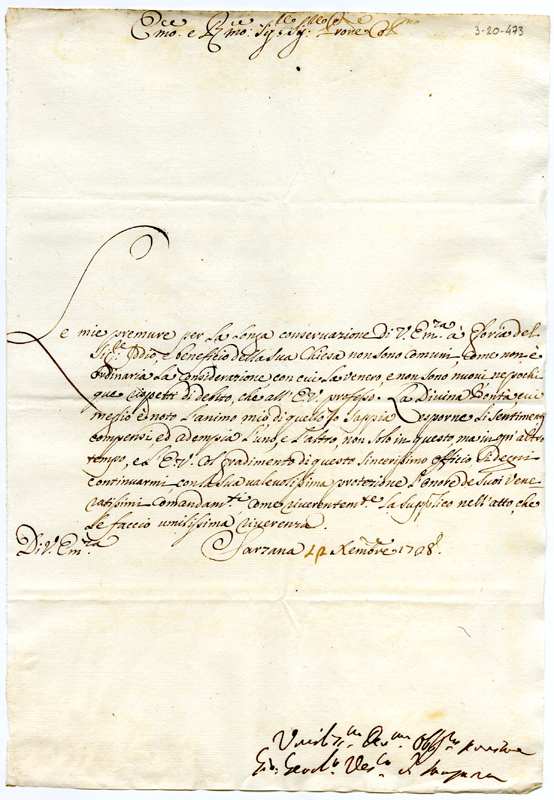 Em.o e R.mo Sig.r Sig.r Prone Col.mo
3-20-473
Le mie premure per la longa conservazione di V. Em.za à gloria del
Sig.re Iddio, e beneficio della sua Chiesa non sono comuni, come non è
ordinaria la considerazione con cui la venero, e non sono nuovi ne pochi
que rispetti di debito, che all' E.V. professo. La Divina Bontà, cui
meglio è noto l'animo mio di quello Io sappia esporne li sentimenti
compensi, ed adempia l'uno, e l'altro, non solo in questo, ma in ogni altro
tempo, e l' E.V. col gradimento di questo sincerissimo officio si degni
continuarmi, con la sua valevolissima protezione l'onore de Suoi vene
ratissimi comandam.ti come riverentem.te la supplico nell'atto, che
le faccio umilissima riverenza.
Di V. Em.za
Sarzana 12 Xembre 1708.
Umiliss.mo Dev.mo Obblig.mo servitore
Vesc.o di Sarzana